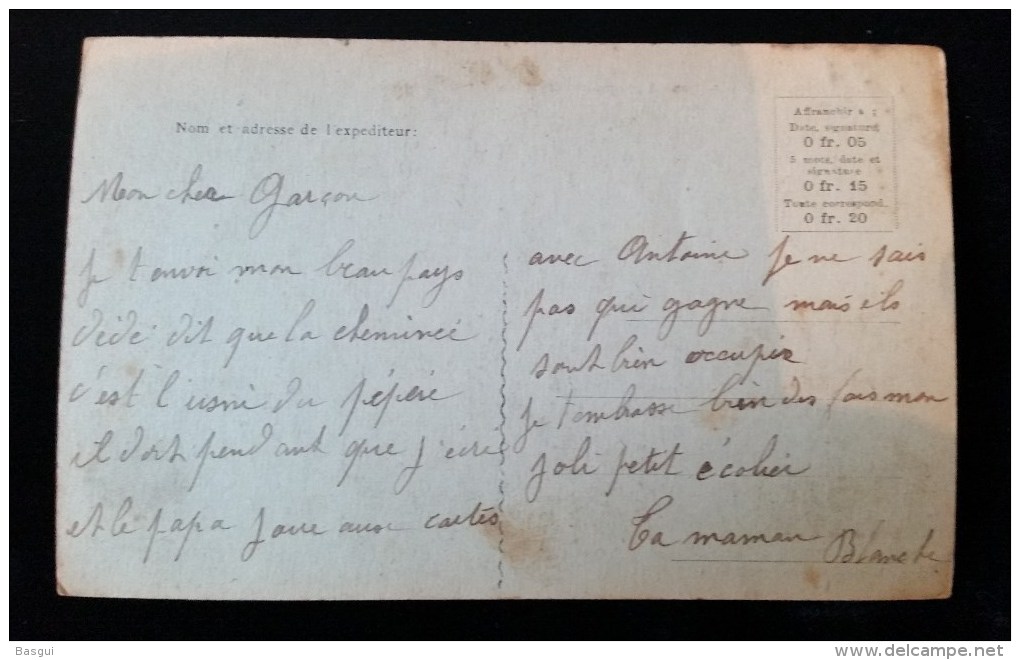 Nom et adresse de l'expediteur:
Affranchir à :
Date, signature
0 fr. 05
5 mots, date et
signature
0 fr. 15
Toute correspond.
0 fr. 20
Mon cher Garçon
Je t envoi mon beau pays
dédé dit que la cheminée
c'est l'usni du pépéré
il dort pendant que j'écri
et le papa joue aux cartes
avec Antoine je ne sais
pas qui gagne mais ils
sont bien occupés
je t'embrasse bien des fois mon
joli petit écolier
Ta maman Blanche
Basgui
www.delcampe.net